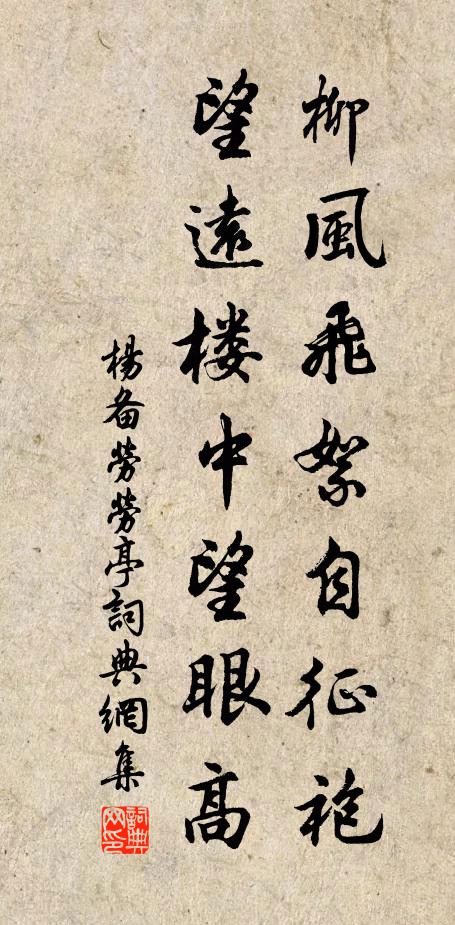 柳風飛絮自征袍
望遠楼中望眼高
楊备勞勞亭詞典網集
詞典网印